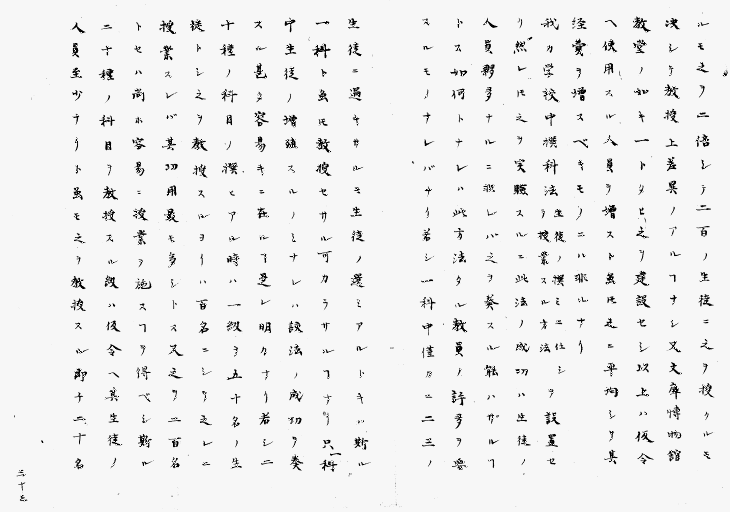 ルモ之ヲ二倍シテ二百ノ生徒ニ之ヲ授クルモ
決シテ教授上差異ノアルヿナシ又文庫博物館
教堂ノ如キ一トタヒ之ヲ建設セシ以上ハ仮令
ヘ使用スル人員ヲ増ストモ之ニ平均シテ其
経費ヲ増スベキモノニハ非ルナリ
我カ学校中撰科法生徒ノ撰ミニ任シテ授業スル方法ヲ設置セ
リ然レ之ヲ実験スルニ此法ノ成功ハ生徒ノ
人員夥多ナルニ非レバ之ヲ奏スル能ハザルヿ
トス如何トナレハ此方法タル教員ノ許多ヲ要
スルモノナレバナリ若シ一科中僅カニ二三ノ
生徒ニ過キサルモ生徒ノ選ミアルトキハ斯ル
一科ト雖モ教授セサル可カラサルヿナリ只一科
中生徒ノ増殖スルノミナレハ該法ノ成功ヲ奏
スル甚タ容易キニ在ルヿ是レ明カナリ者シ二
十種ノ科目ノ撰ヒアル時ハ一級ヲ五十名ノ生
徒トシ之ヲ教授スルヨリハ百名ニシテ之レニ
授業スレバ其功用最モ多シトス又之ヲ二百名
トセハ尚ホ容易ニ授業ヲ施スヿヲ得ベシ斯ル
二十種ノ科目ヲ教授スル級ハ仮令ヘ其生徒ノ
人員至少ナリト雖モ之ヲ教授スル即チ二十名
三十五